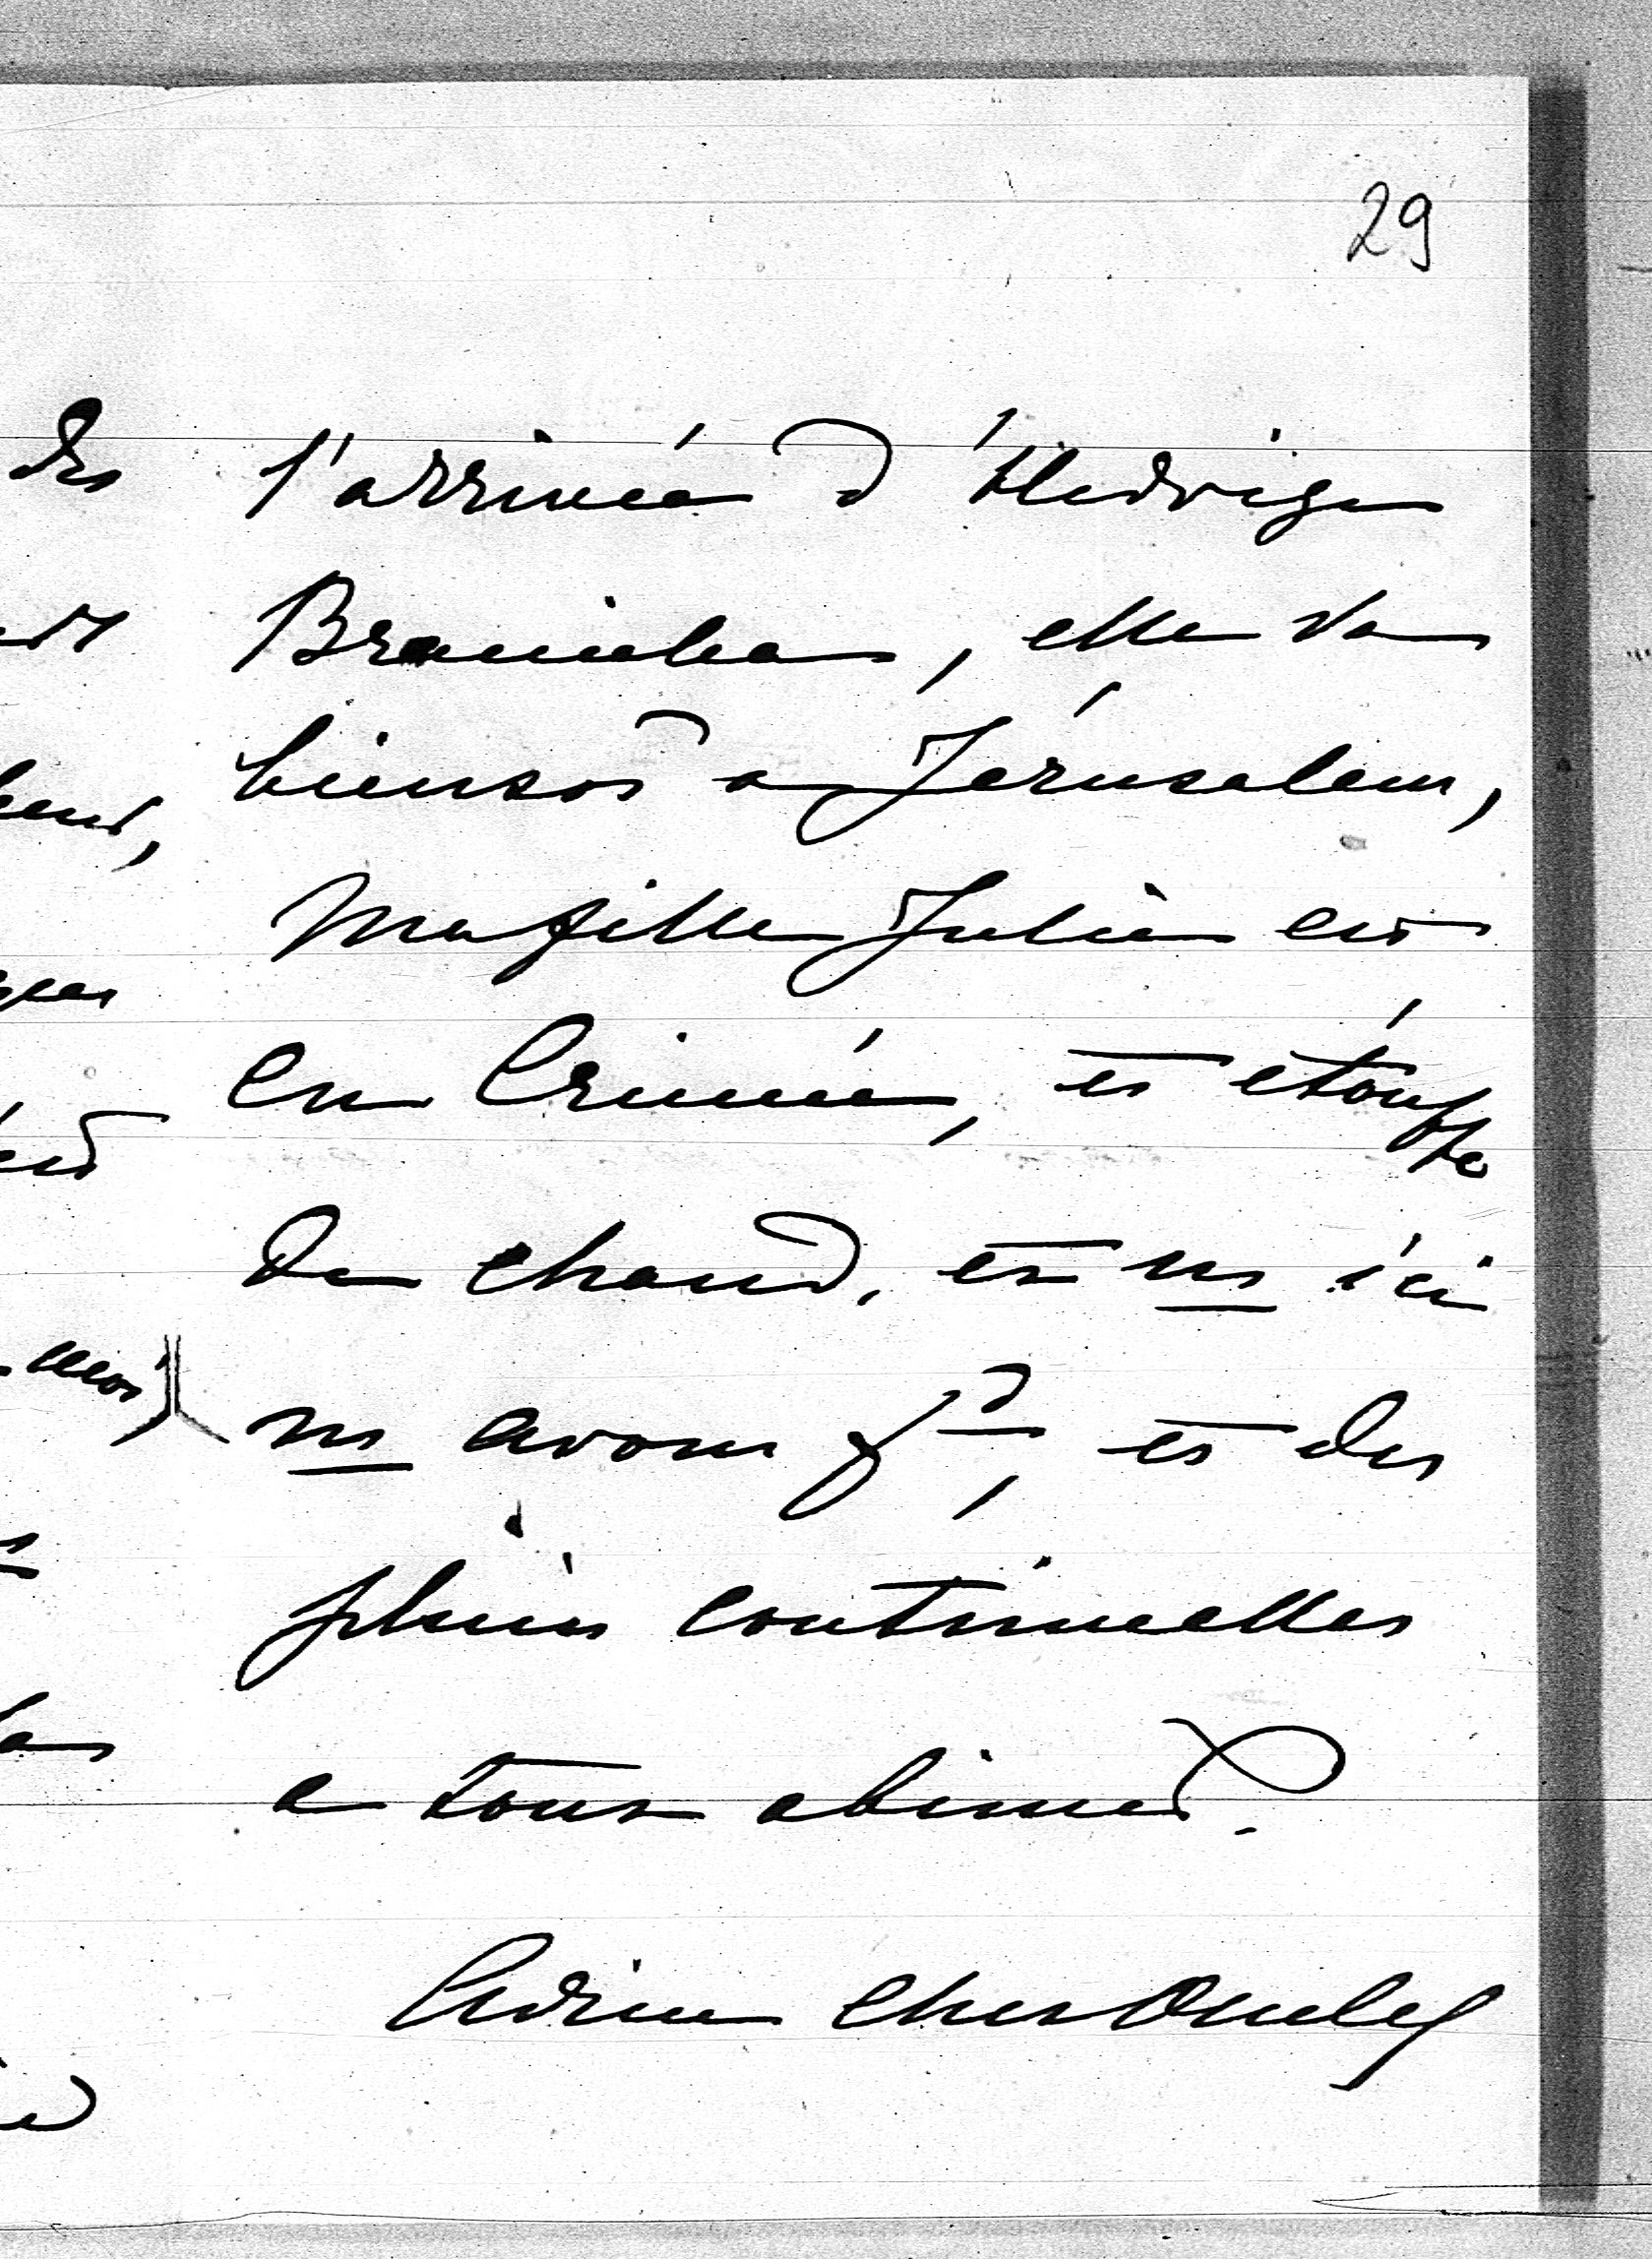 29
l'arrivée d'Hedwige
Braniçka, elle va
bientot a Jérusalem,
Ma fille Julie est
en Crimée, et étouffe
de chaud, et ns ici
ns avons fd, et des
pluies continuelles
a tout abimer.
Adieu cher Oncle
des